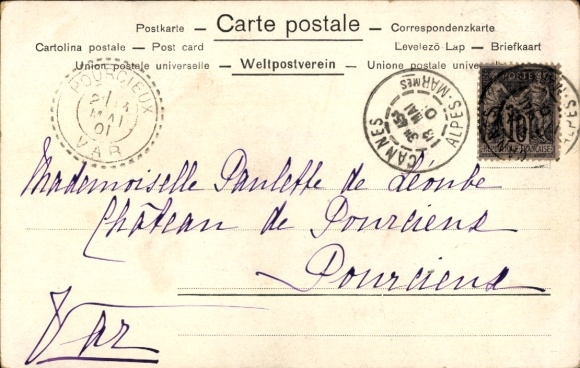 Postkarte — Carte postale — Correspondenzkarte
Cartolina postale — Post card Levelezö Lap — Briefkaart
Union postale universelle — Weltpostverein — Unione postale univers
POURCIEUX
MAI
01
VAR
CANNES
ALPES-MARMES
13
MAI
POSTES
10
Mademoiselle Paulette de
Château de Pourciens
Pourciens
Var